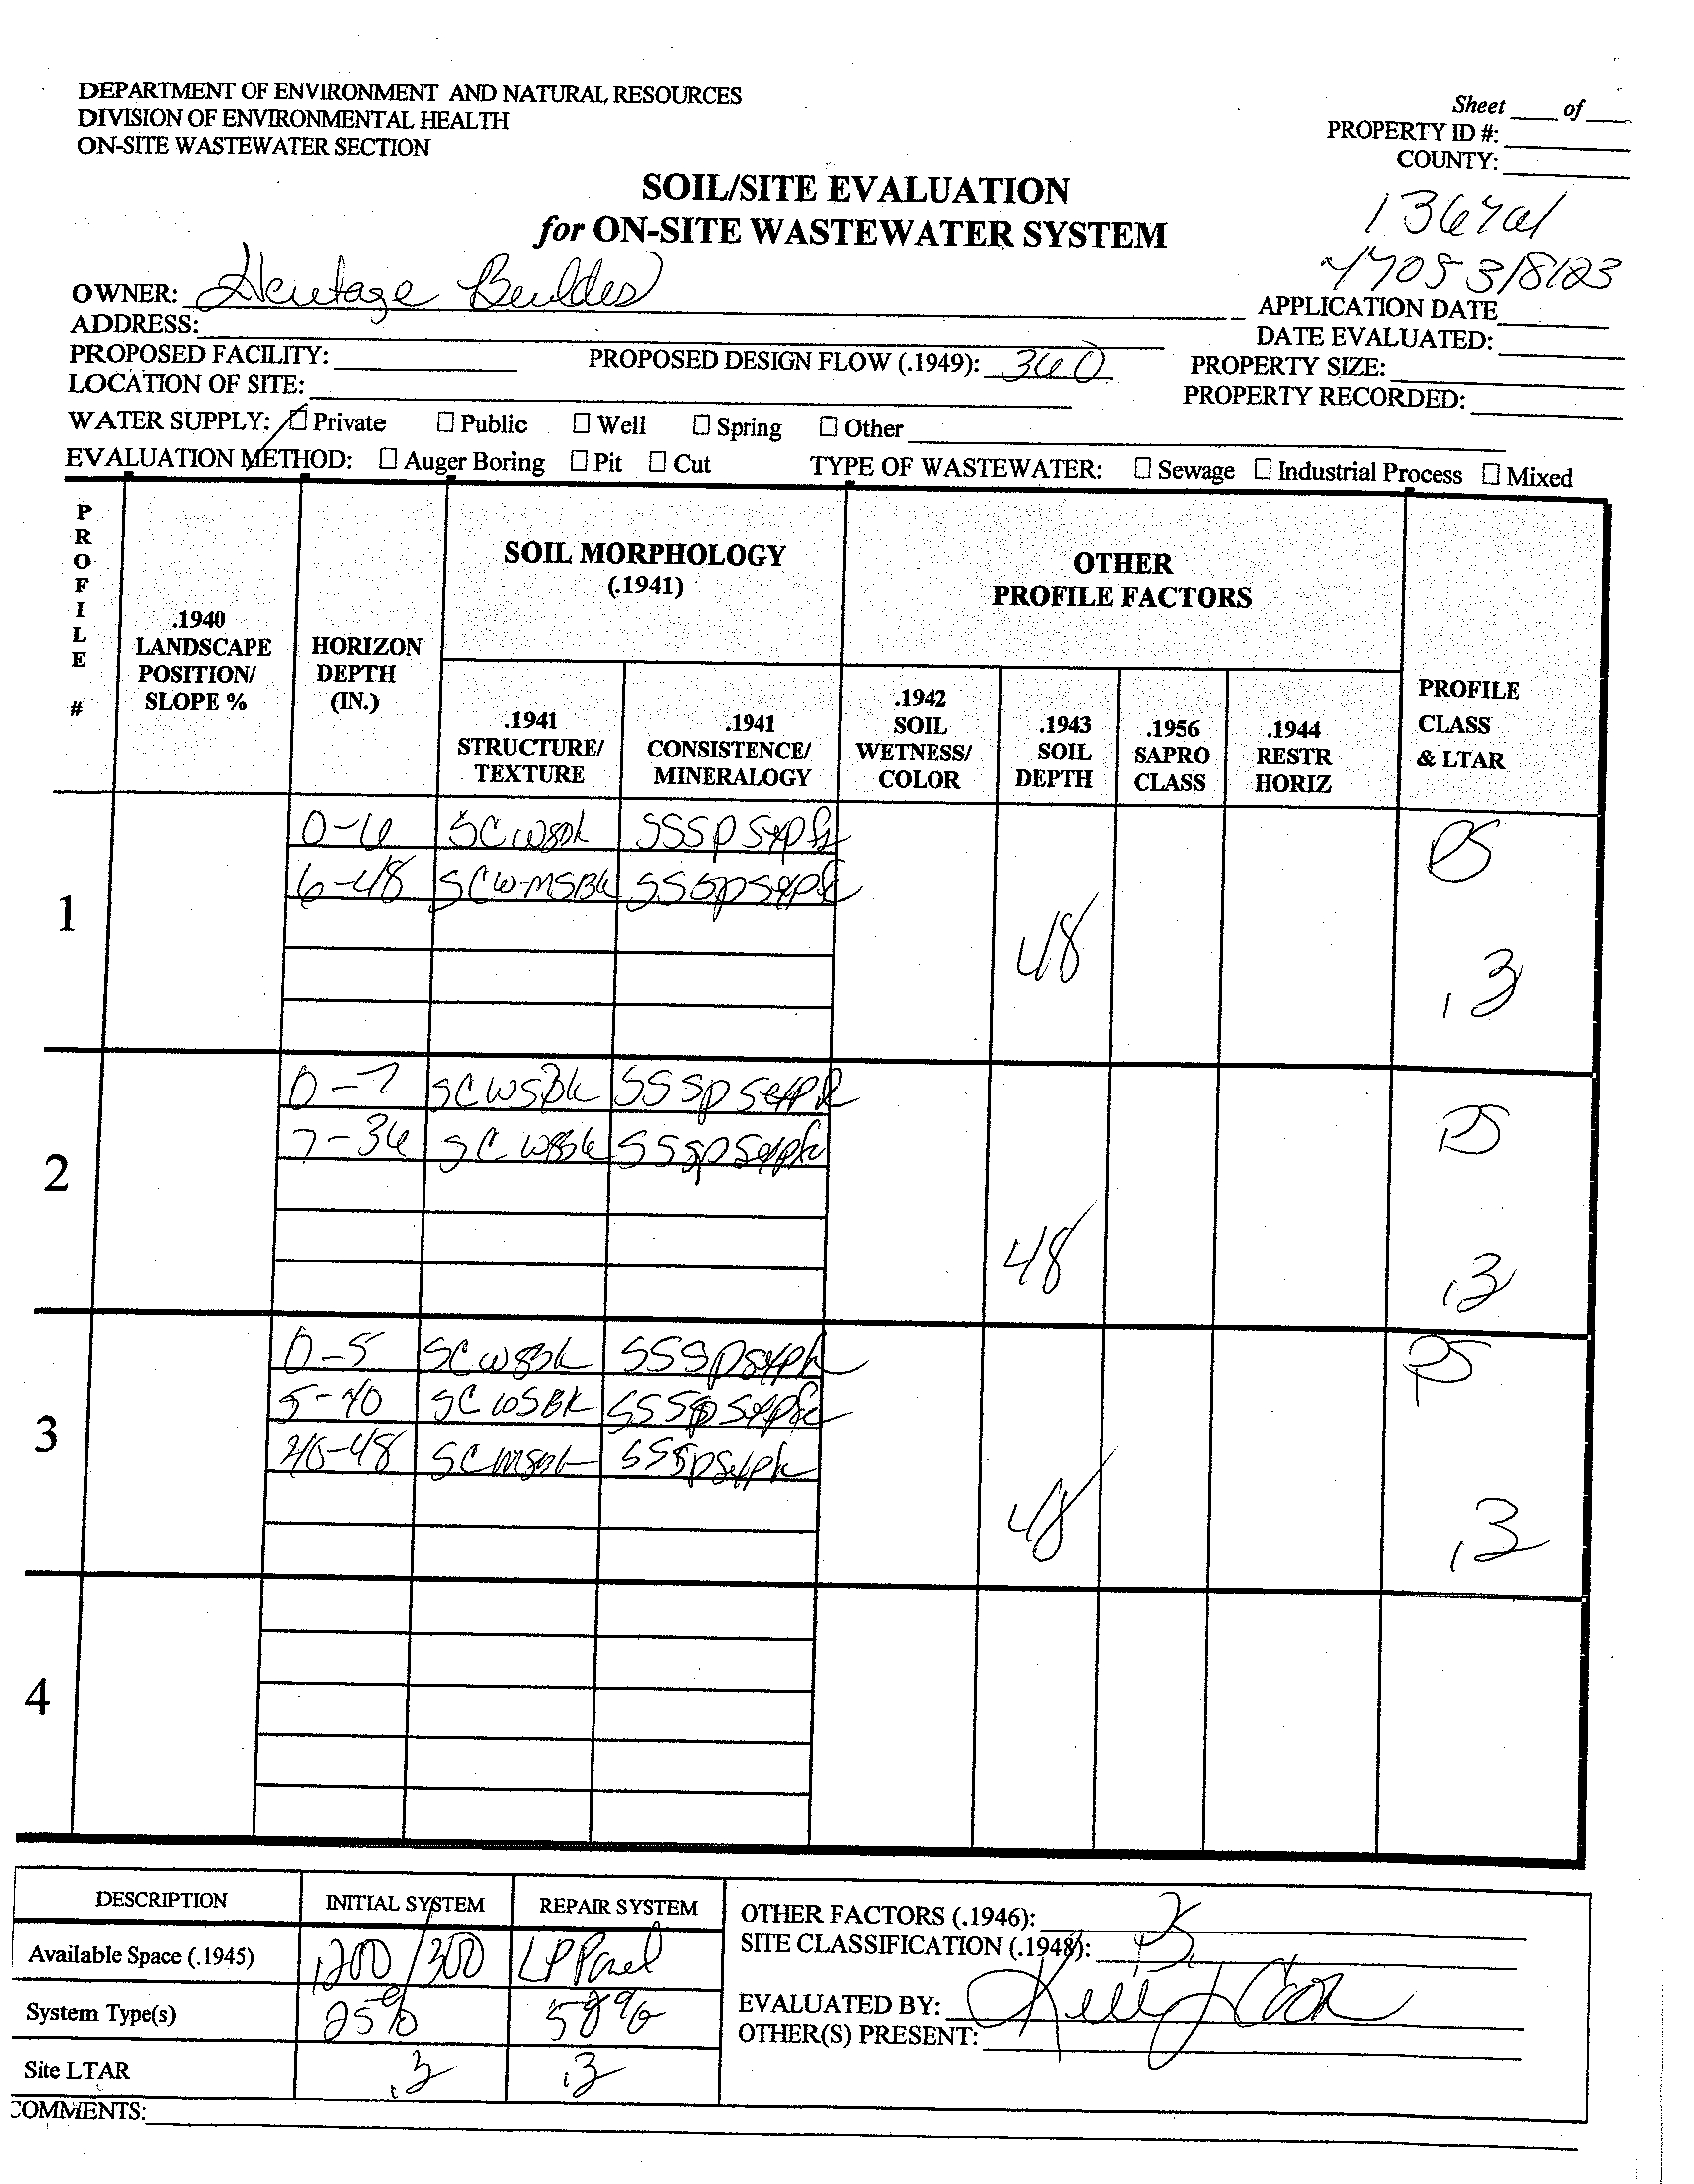 DEPARTMENT OF ENVIRONMENT AND NATURAL RESOURCES
DIVISION OF ENVIRONMENTAL HEALTH
ON-SITE WASTEWATER SECTION
Sheet ____ of ____
PROPERTY ID #:
COUNTY:
SOIL/SITE EVALUATION
for ON-SITE WASTEWATER SYSTEM
3/8/23
OWNER: Heritage Builders
APPLICATION DATE
ADDRESS:
DATE EVALUATED:
PROPOSED FACILITY: PROPOSED DESIGN FLOW (.1949): 360 PROPERTY SIZE:
LOCATION OF SITE: PROPERTY RECORDED:
WATER SUPPLY: Private Public Well Spring Other
EVALUATION METHOD: Auger Boring Pit Cut TYPE OF WASTEWATER: Sewage Industrial Process Mixed
PROFILE #
.1940 LANDSCAPE POSITION/ SLOPE %
HORIZON DEPTH (IN.)
SOIL MORPHOLOGY (.1941)
OTHER PROFILE FACTORS
.1941 STRUCTURE/ TEXTURE
.1941 CONSISTENCE/ MINERALOGY
.1942 SOIL WETNESS/ COLOR
.1943 SOIL DEPTH
.1956 SAPRO CLASS
.1944 RESTR HORIZ
PROFILE CLASS & LTAR
1
0-6 SC wsbk
6-48 SC w-mSBK
48
PS
.3
2
0-7 SC wSBk
7-36 SC wsbk
48
PS
.3
3
0-5 SC wsbk
SC wSBK
SC msbk
48
PS
.3
4
DESCRIPTION INITIAL SYSTEM REPAIR SYSTEM
Available Space (.1945)
System Type(s) 25%
Site LTAR .3 .3
OTHER FACTORS (.1946):
SITE CLASSIFICATION (.1948): PS
EVALUATED BY: Kelly Cook
OTHER(S) PRESENT:
COMMENTS: